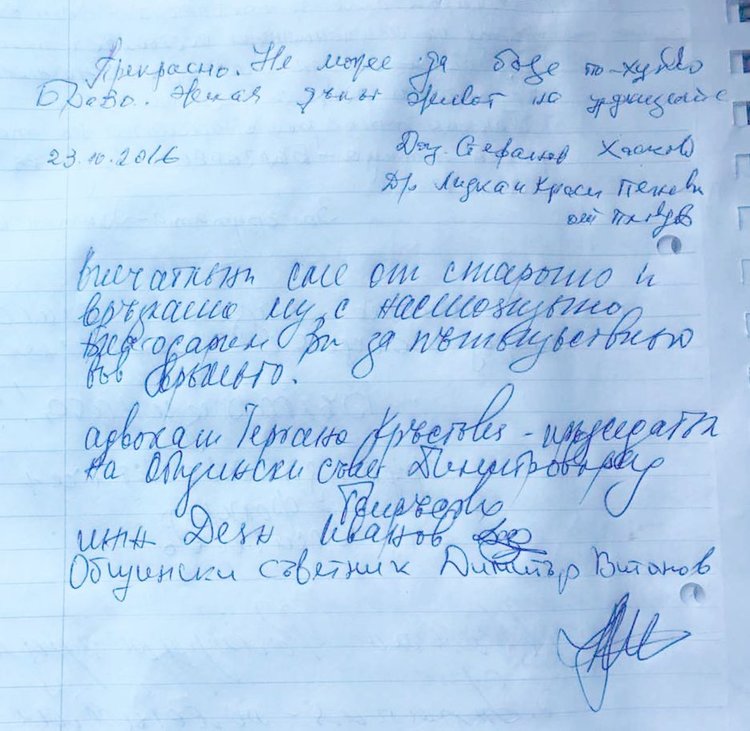 Прекрасно. Не може да бъде по-хубаво
Браво. Желая дълъг живот на уредниците
23.10.2016 Доц. Стефанов Хасково
Д-р Лидка и Краси Пенкови
от Пловдив
Впечатлени сме от старото и
връзката му с настоящето
Благодарем Ви за пътешествието
във времето.
адвокат Гергана Кръстева - председател
на Общински съвет Димитровград
инж Деян Иванов
Общински съветник Димитър Витанов